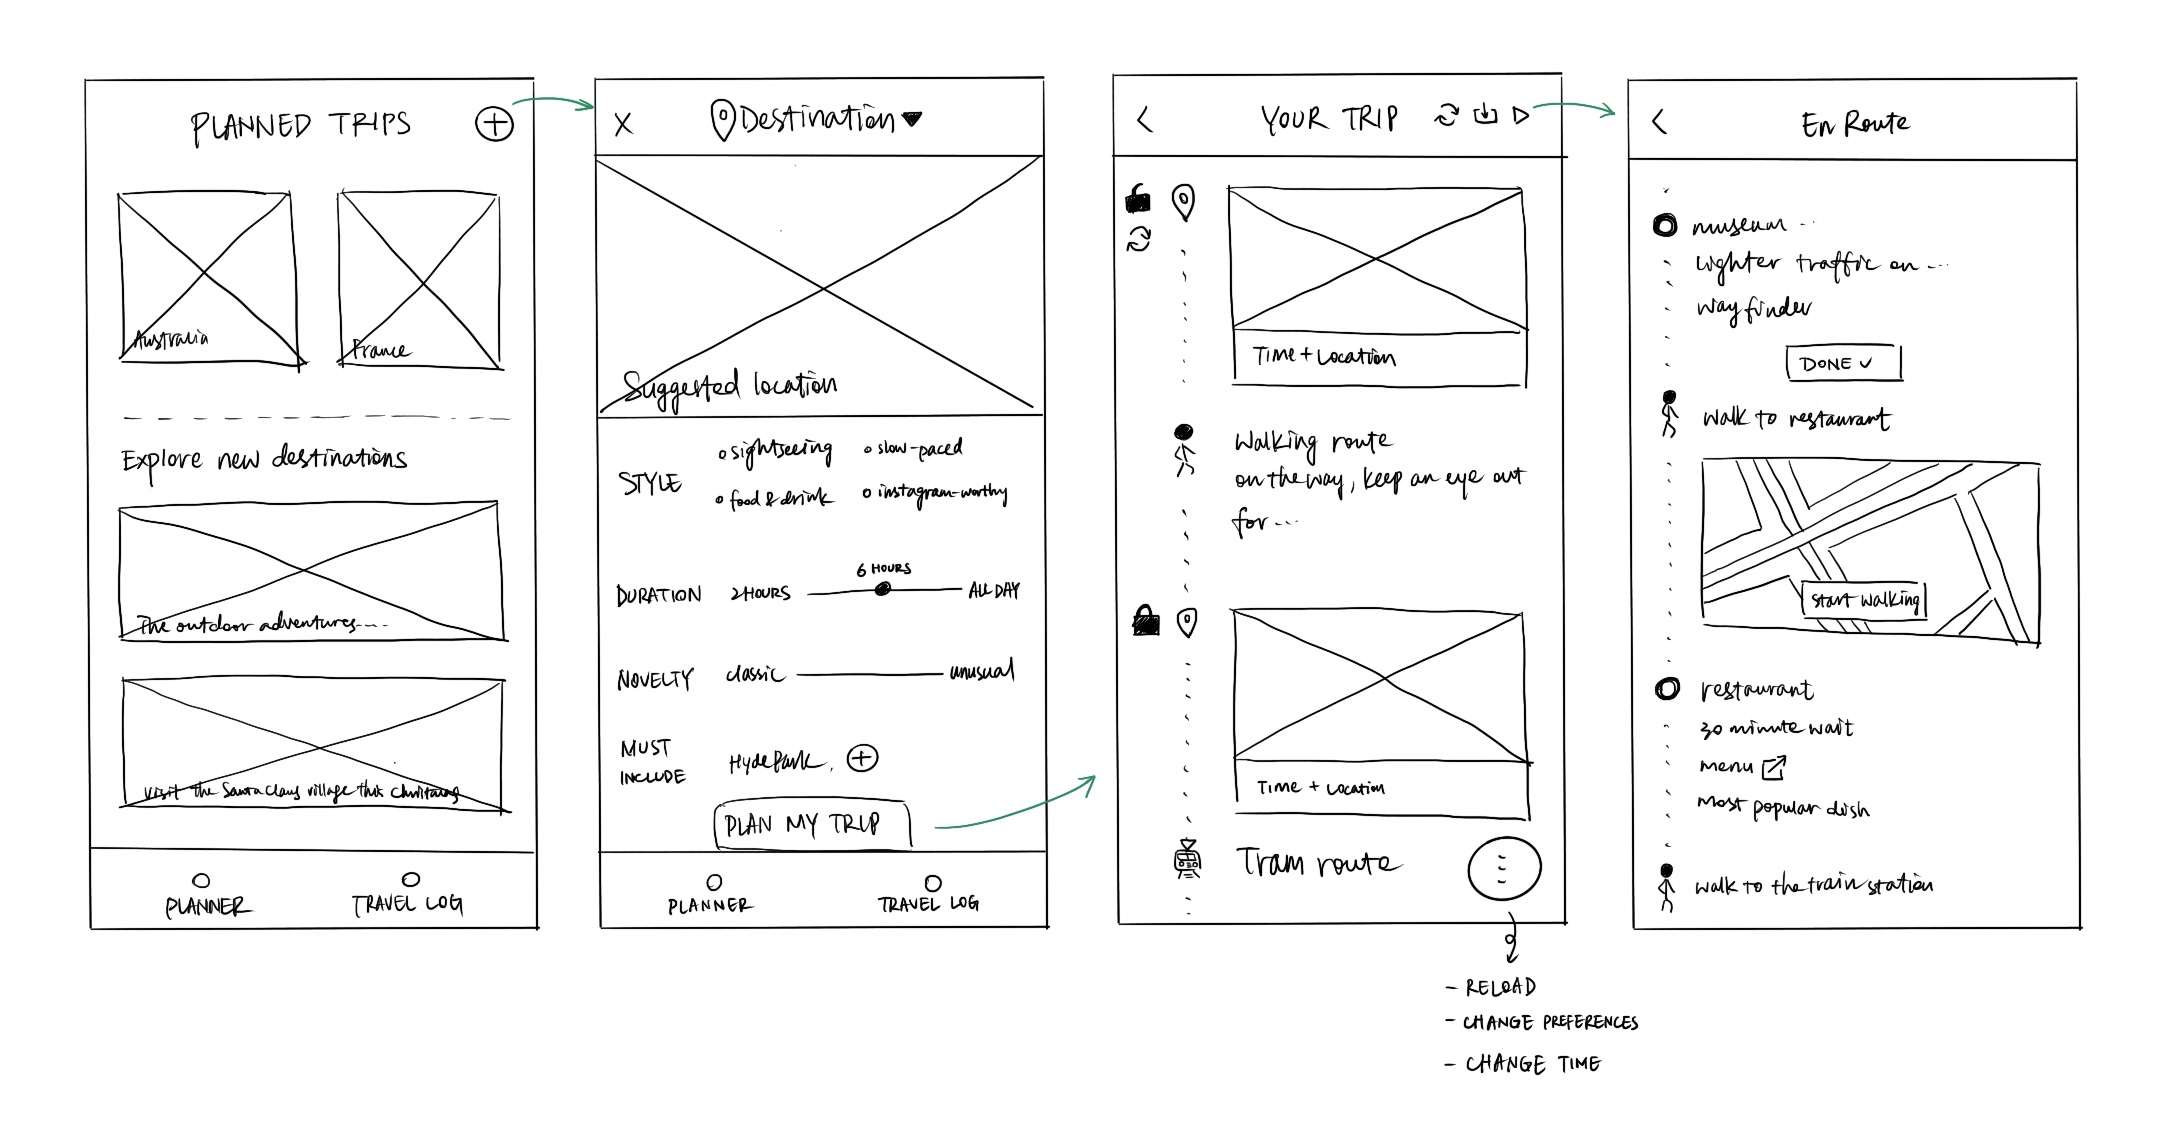 PLANNED TRIPS
Australia
France
Explore new destinations
The outdoor adventures----
Visit the Santa Claus village this Christmas
PLANNER
TRAVEL LOG
X
Destination
Suggested location
STYLE
sightseeing
slow-paced
food & drink
instagram-worthy
DURATION
2HOURS
6 HOURS
ALL DAY
NOVELTY
classic
unusual
MUST
INCLUDE
Hyde Park,
PLAN MY TRIP
PLANNER
TRAVEL LOG
<
YOUR TRIP
Time + Location
Walking route
on the way, keep an eye out
for---
Time + Location
Tram route
- RELOAD
- CHANGE PREFERENCES
- CHANGE TIME
<
En Route
museum ...
lighter traffic on ...
way finder
DONE ✓
walk to restaurant
start walking
restaurant
30 minute wait
menu
most popular dish
walk to the train station